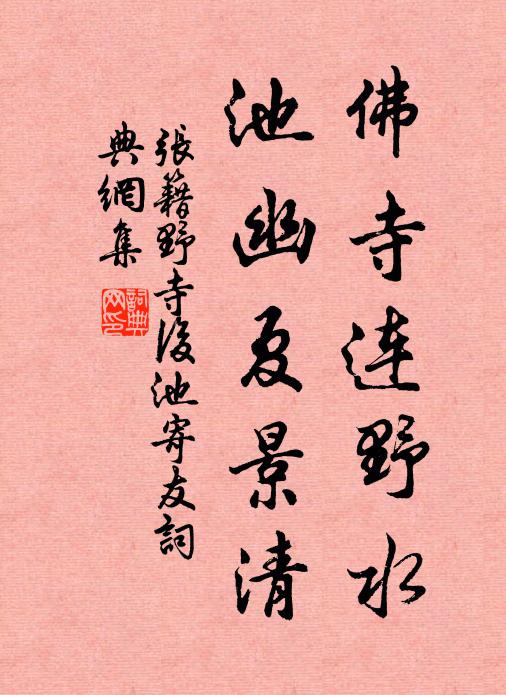 佛寺連野水
池幽夏景清
張籍野寺後池寄友詞
典網集
詞典
网印